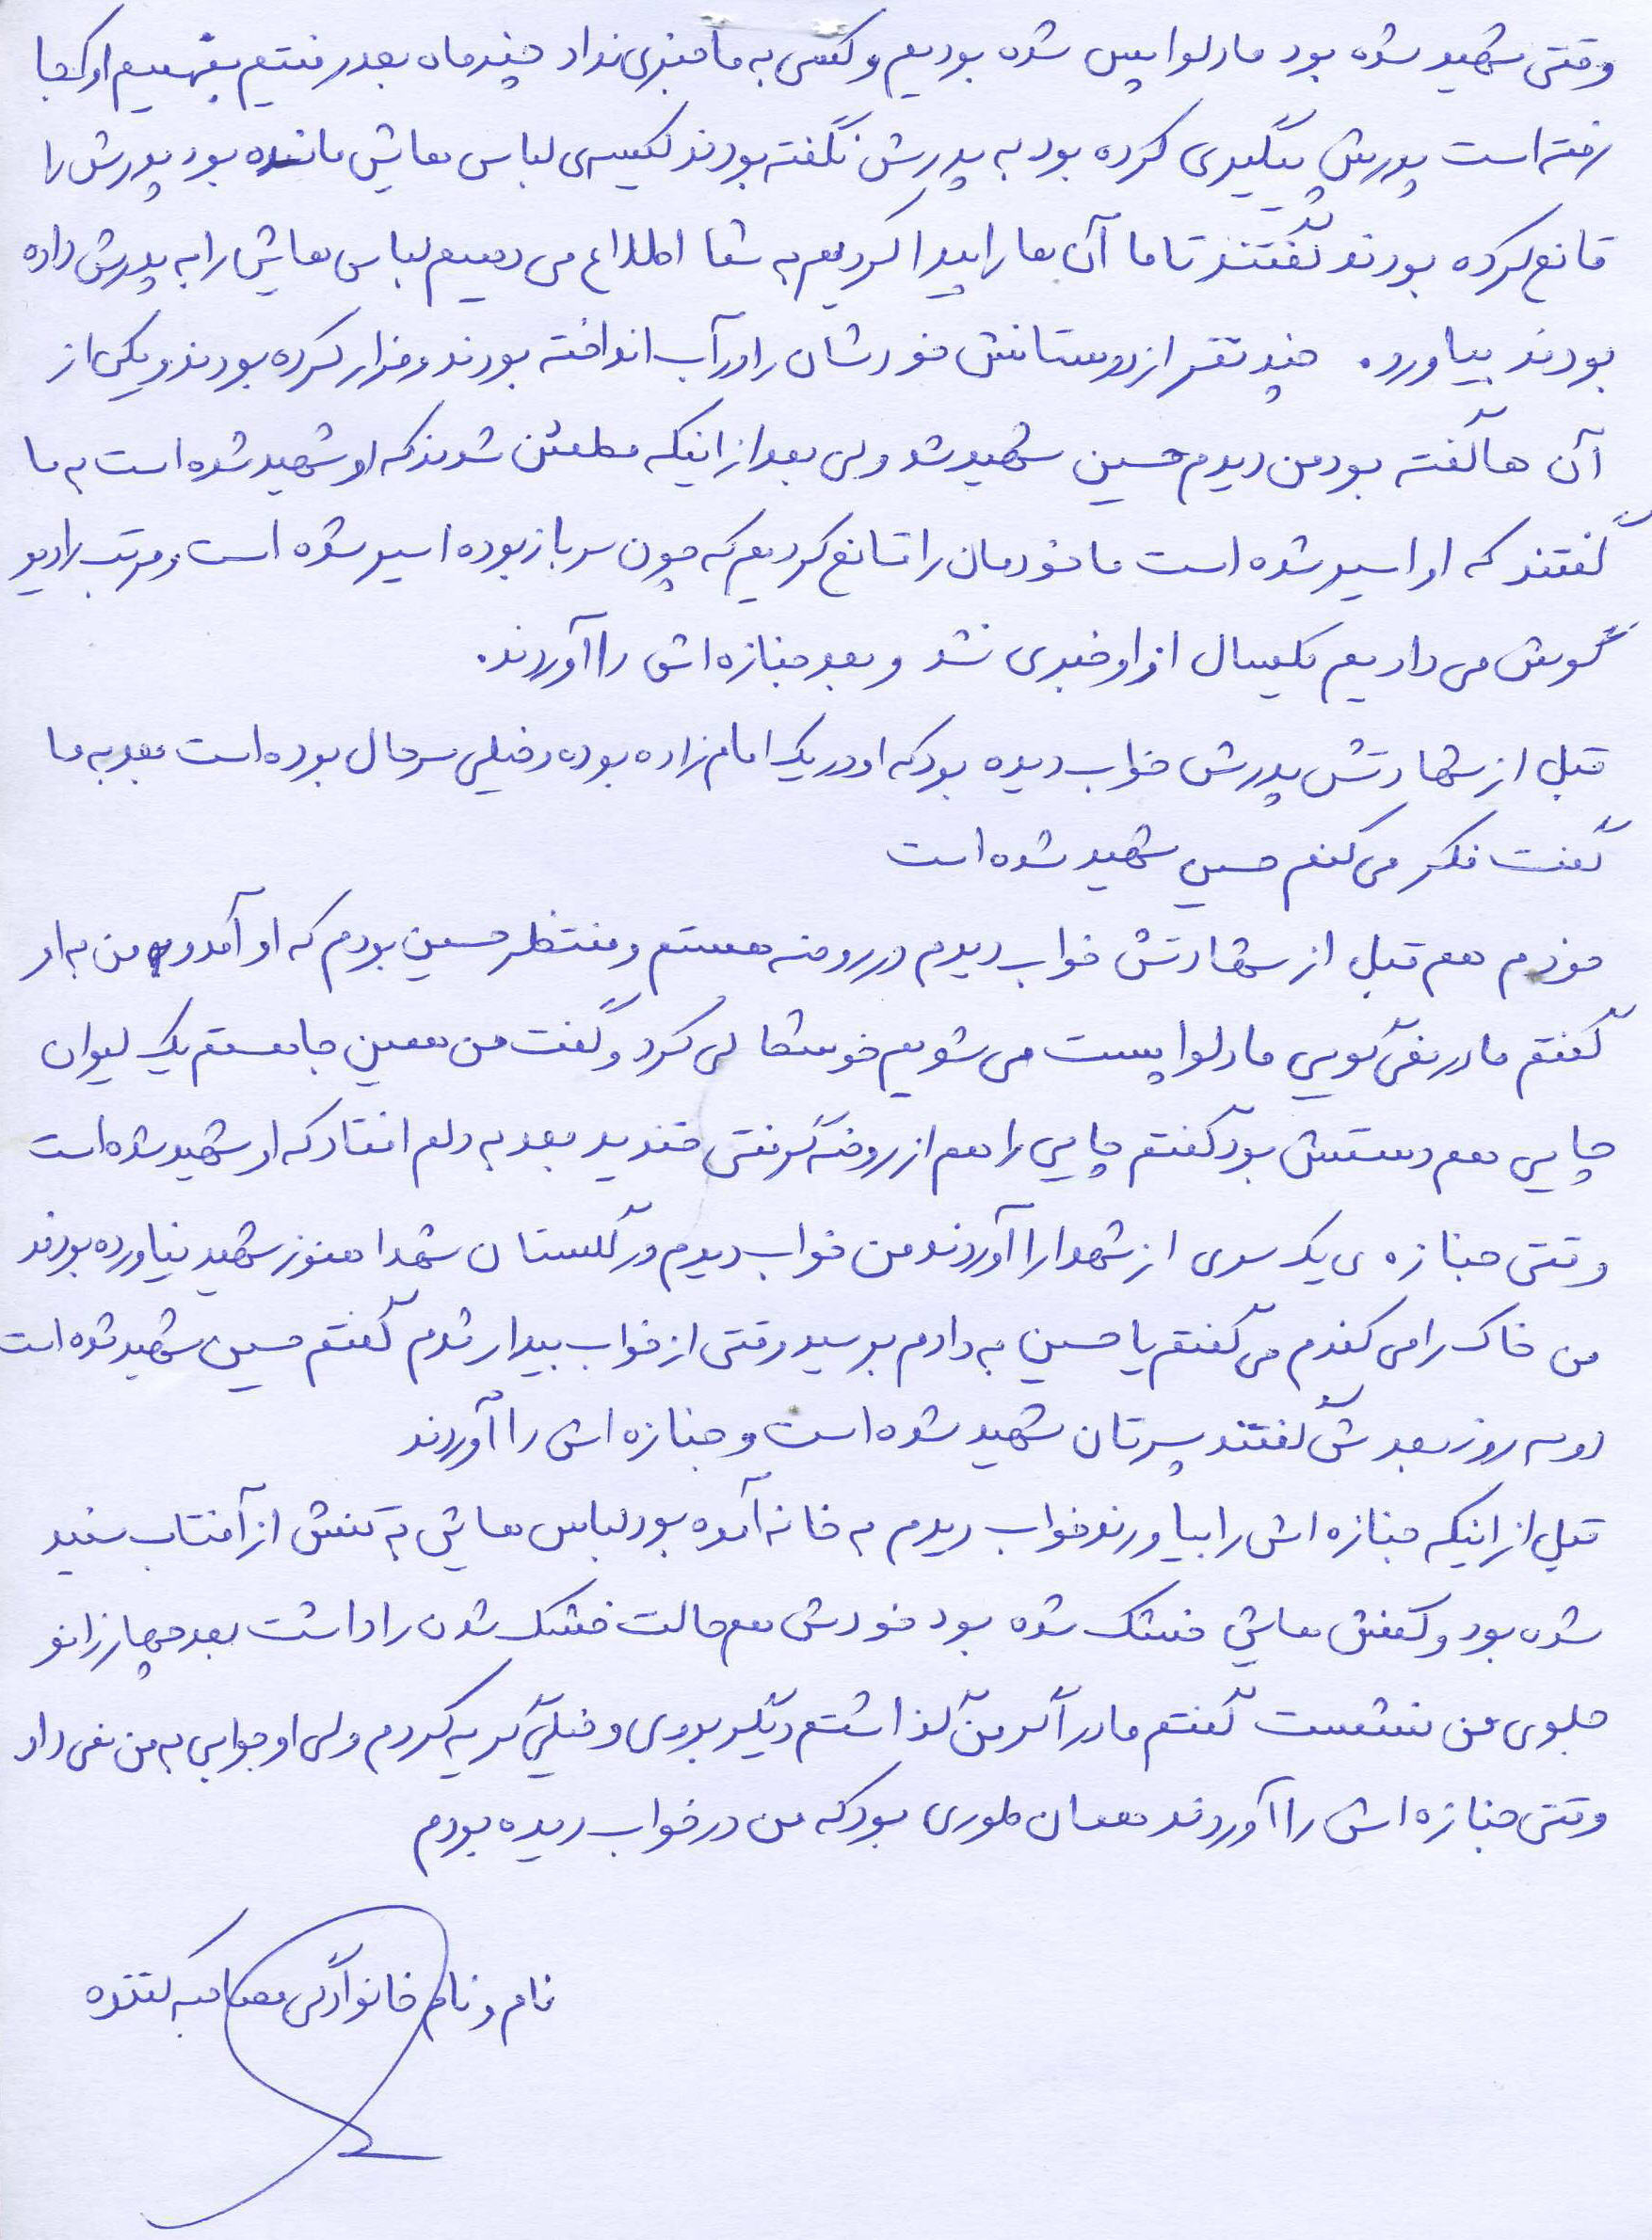 وقتی شهید شده بود ما دلواپس شده بودیم و کسی به ما خبری نداد چند ماه بعد رفتیم بفهمیم او کجا
رفته است پدرش پیگیری کرده بود به پدرش نگفته بودند کیسه‌ی لباس هایش مانده بود پدرش را
قانع کرده بودند گفتند تا ما آن ها را پیدا کردیم به شما اطلاع می دهیم لباس هایش را به پدرش داده
بودند بیاورد. چند نفر از دوستانش خودشان را در آب انداخته بودند و فرار کرده بودند و یکی از
آن ها گفته بود من دیدم حسین شهید شد ولی بعد از اینکه مطمئن شدند که او شهید شده است به ما
گفتند که او اسیر شده است ما خودمان را قانع کردیم که چون سرباز بوده اسیر شده است و مرتب رادیو
گوش می دادیم یکسال از او خبری نشد و بعد جنازه اش را آوردند.
قبل از شهادتش پدرش خواب دیده بود که او در یک امام زاده بوده و خیلی سرحال بوده است بعد به ما
گفت فکر می کنم حسین شهید شده است
خودم هم قبل از شهادتش خواب دیدم در روضه هستم و منتظر حسین بودم که او آمد و من به او
گفتم مادر نمی گویی ما دلواپست می شویم خوشحالی کرد و گفت من همین جا هستم یک لیوان
چایی هم دستش بود گفتم چایی را هم از روضه گرفتی خندید بعد به دلم افتاد که او شهید شده است
وقتی جنازه ی یک سری از شهدا را آوردند من خواب دیدم در گلستان شهدا هنوز شهید نیاورده بودند
من خاک را می کندم می گفتم یا حسین به دادم برسید وقتی از خواب بیدار شدم گفتم حسین شهید شده است
دو سه روز بعدش گفتند پسرتان شهید شده است و جنازه اش را آوردند
قبل از اینکه جنازه اش را بیاورند خواب دیدم به خانه آمده بود لباس هایش به تنش از آفتاب سفید
شده بود و کفش هایش خشک شده بود خودش هم حالت خشک شدن را داشت بعد چهار زانو
جلوی من نشست گفتم مادر اگر من گذاشتم دیگر بروی و خیلی گریه کردم ولی او جوابی به من نمی داد
وقتی جنازه اش را آوردند همان طوری بود که من در خواب دیده بودم
نام و نام خانوادگی مصاحبه کننده